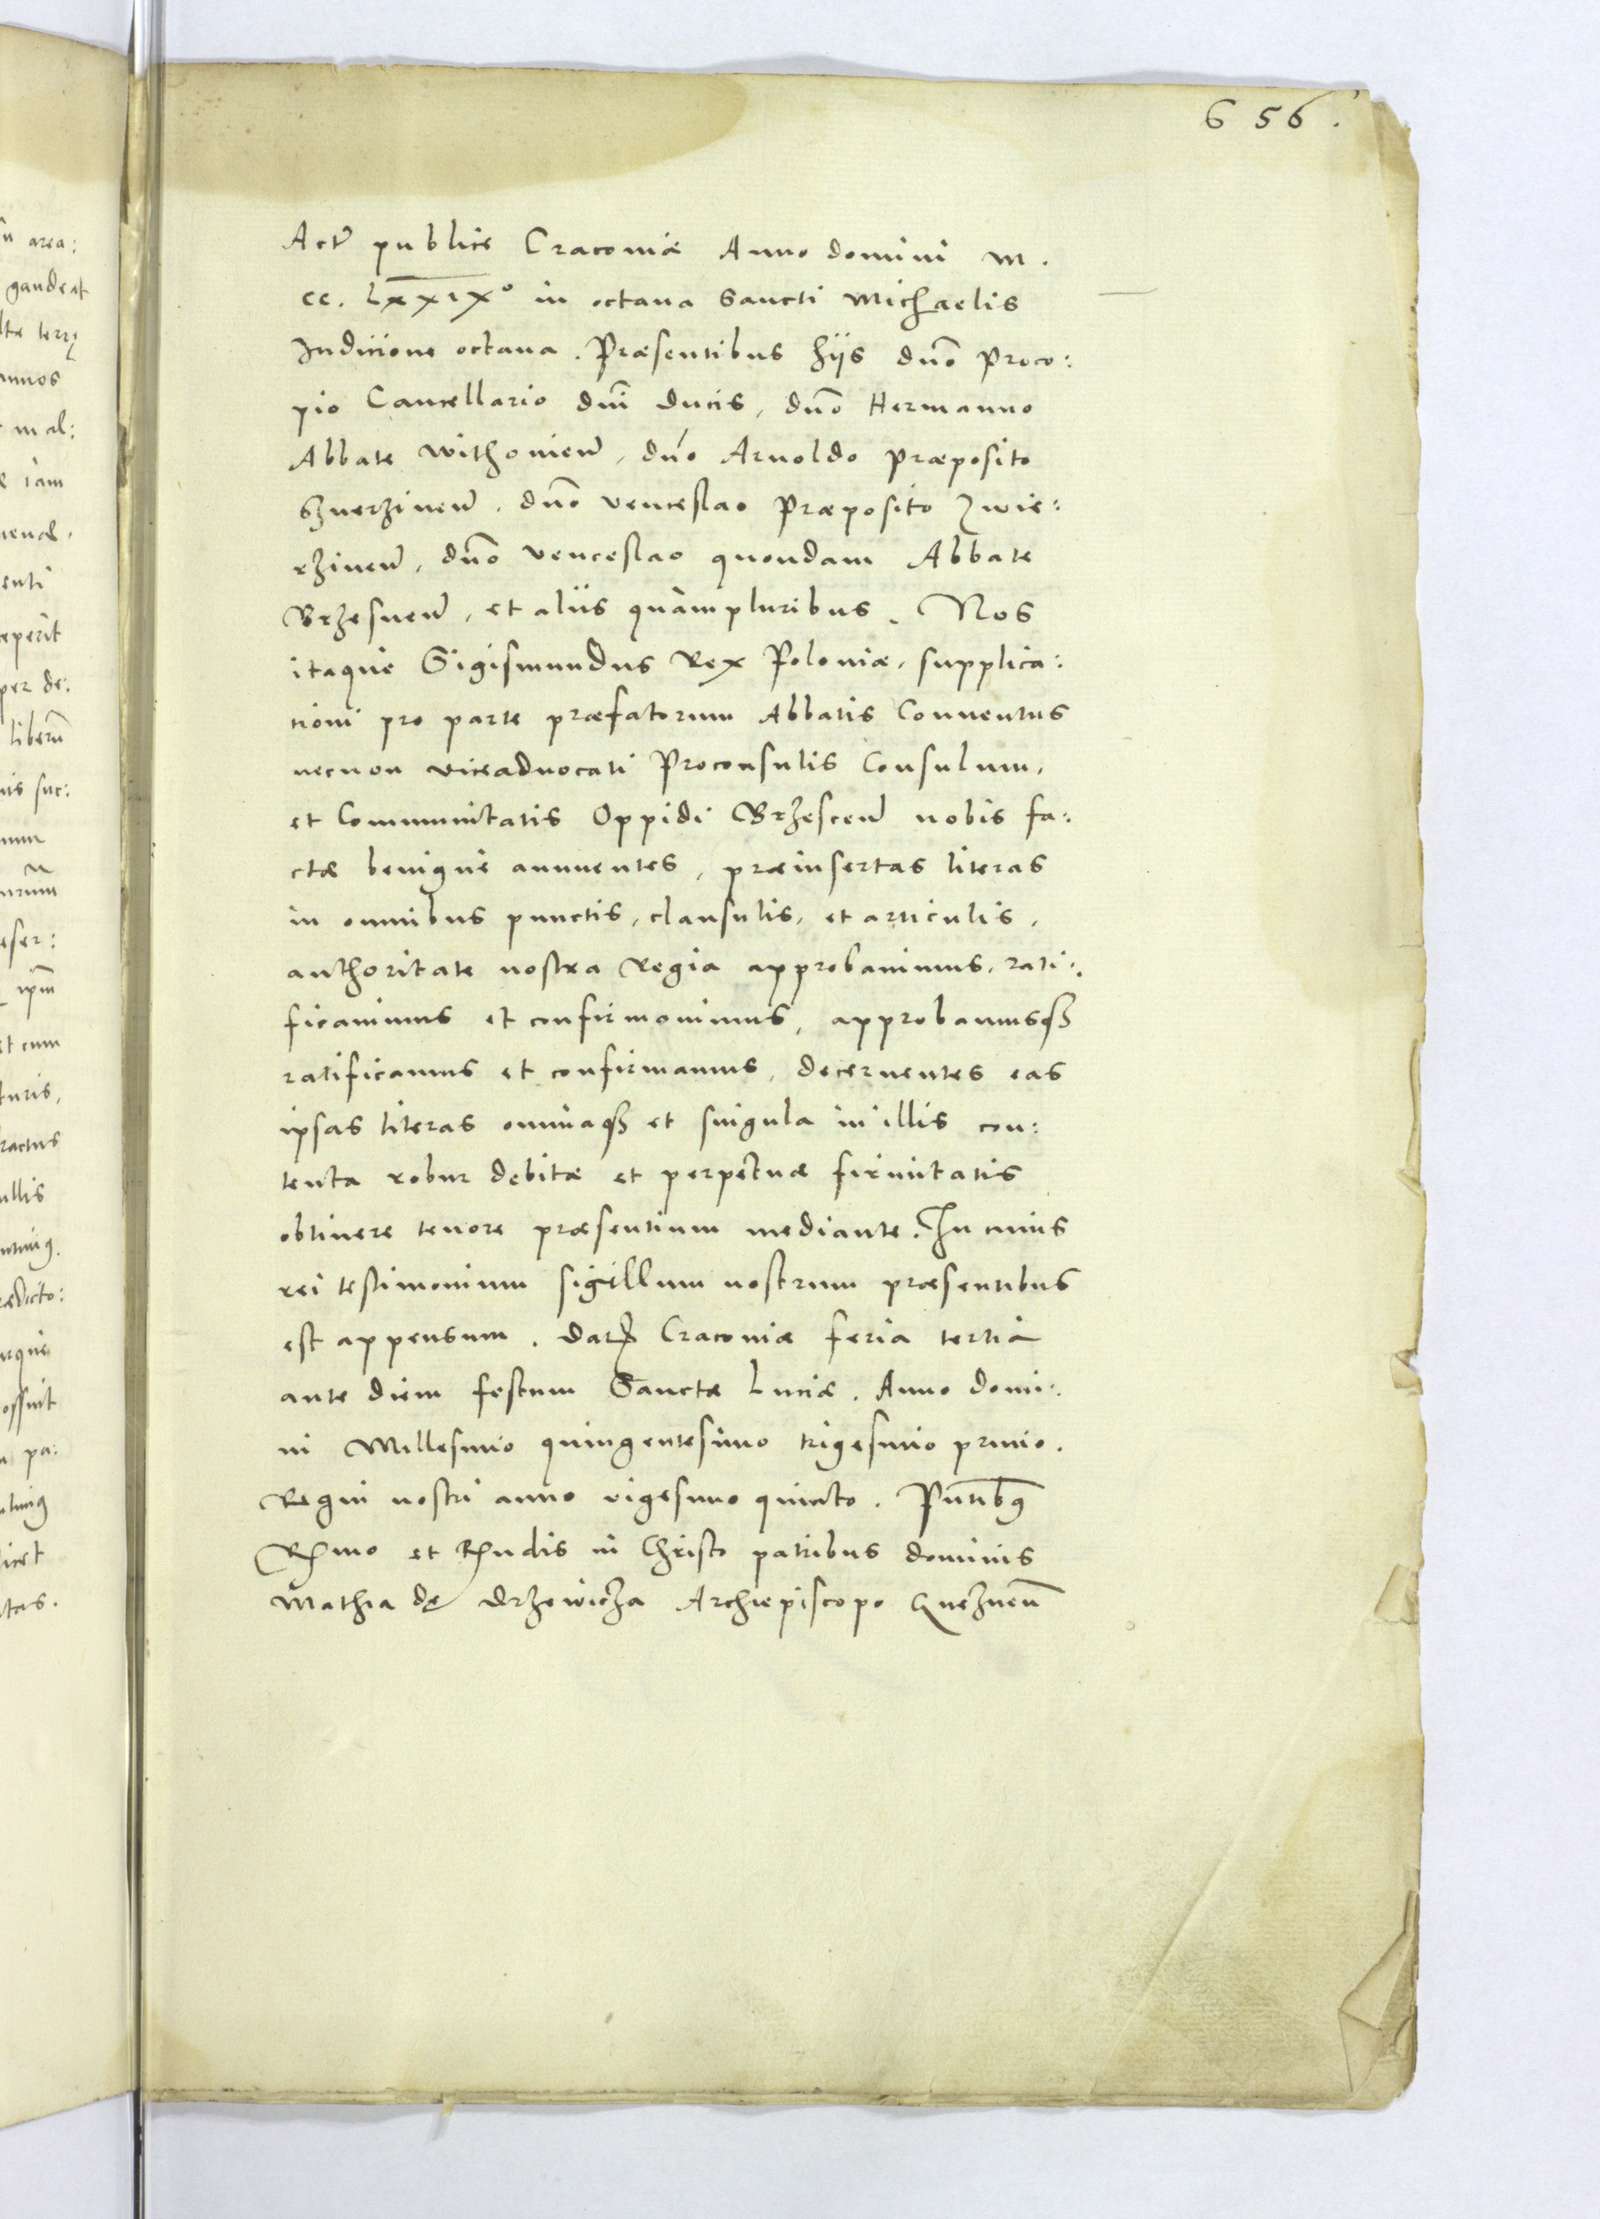 656.
Actũ publice Cracoviæ Anno domini M.
CC. LXXIX° in octava Sancti Michaelis
Indicione octava. Præsentibus hijs dño Proco:
pio Cancellario dñi Ducis, dño Hermanno
Abbate Withovieñ, dño Arnoldo Præposito
dño Venceslao Præposito Zwie:
rzineñ, dño Venceslao quondam Abbate
Brzesneñ, et alijs quàmpluribus. Nos
itaque Sigismundus Rex Poloniæ, supplica:
tioni pro parte præfatorum Abbatis Conventus
necnon viceadvocati Proconsulis Consulum,
et Communitatis Oppidi Brzesceñ nobis fa:
ctæ benigne annuentes, præinsertas literas
in omnibus punctis, clausulis, et articulis,
authoritate nostra Regia approbavimus, rati:
ficavimus et confirmovimus, approbamusqȝ
ratificamus et confirmamus, decernentes eas
ipsas literas omniaqȝ et singula in illis con:
tenta robur debitæ et perpetuæ firmitatis
obtinere tenore præsentium mediante. In cuius
rei testimonium sigillum nostrum præsentibus
est appensum. Datꝭ Cracoviæ feria tertia
ante diem festum Sanctæ Luciæ. Anno domi:
ni Millesimo quingentesimo trigesimo primo.
Regni nostri anno vigesimo quinto. Pñtibꝰ
Rmo et Rndis in Christo patribus dominis
Mathia de Drzewicza Archiepiscopo Gnezneñ